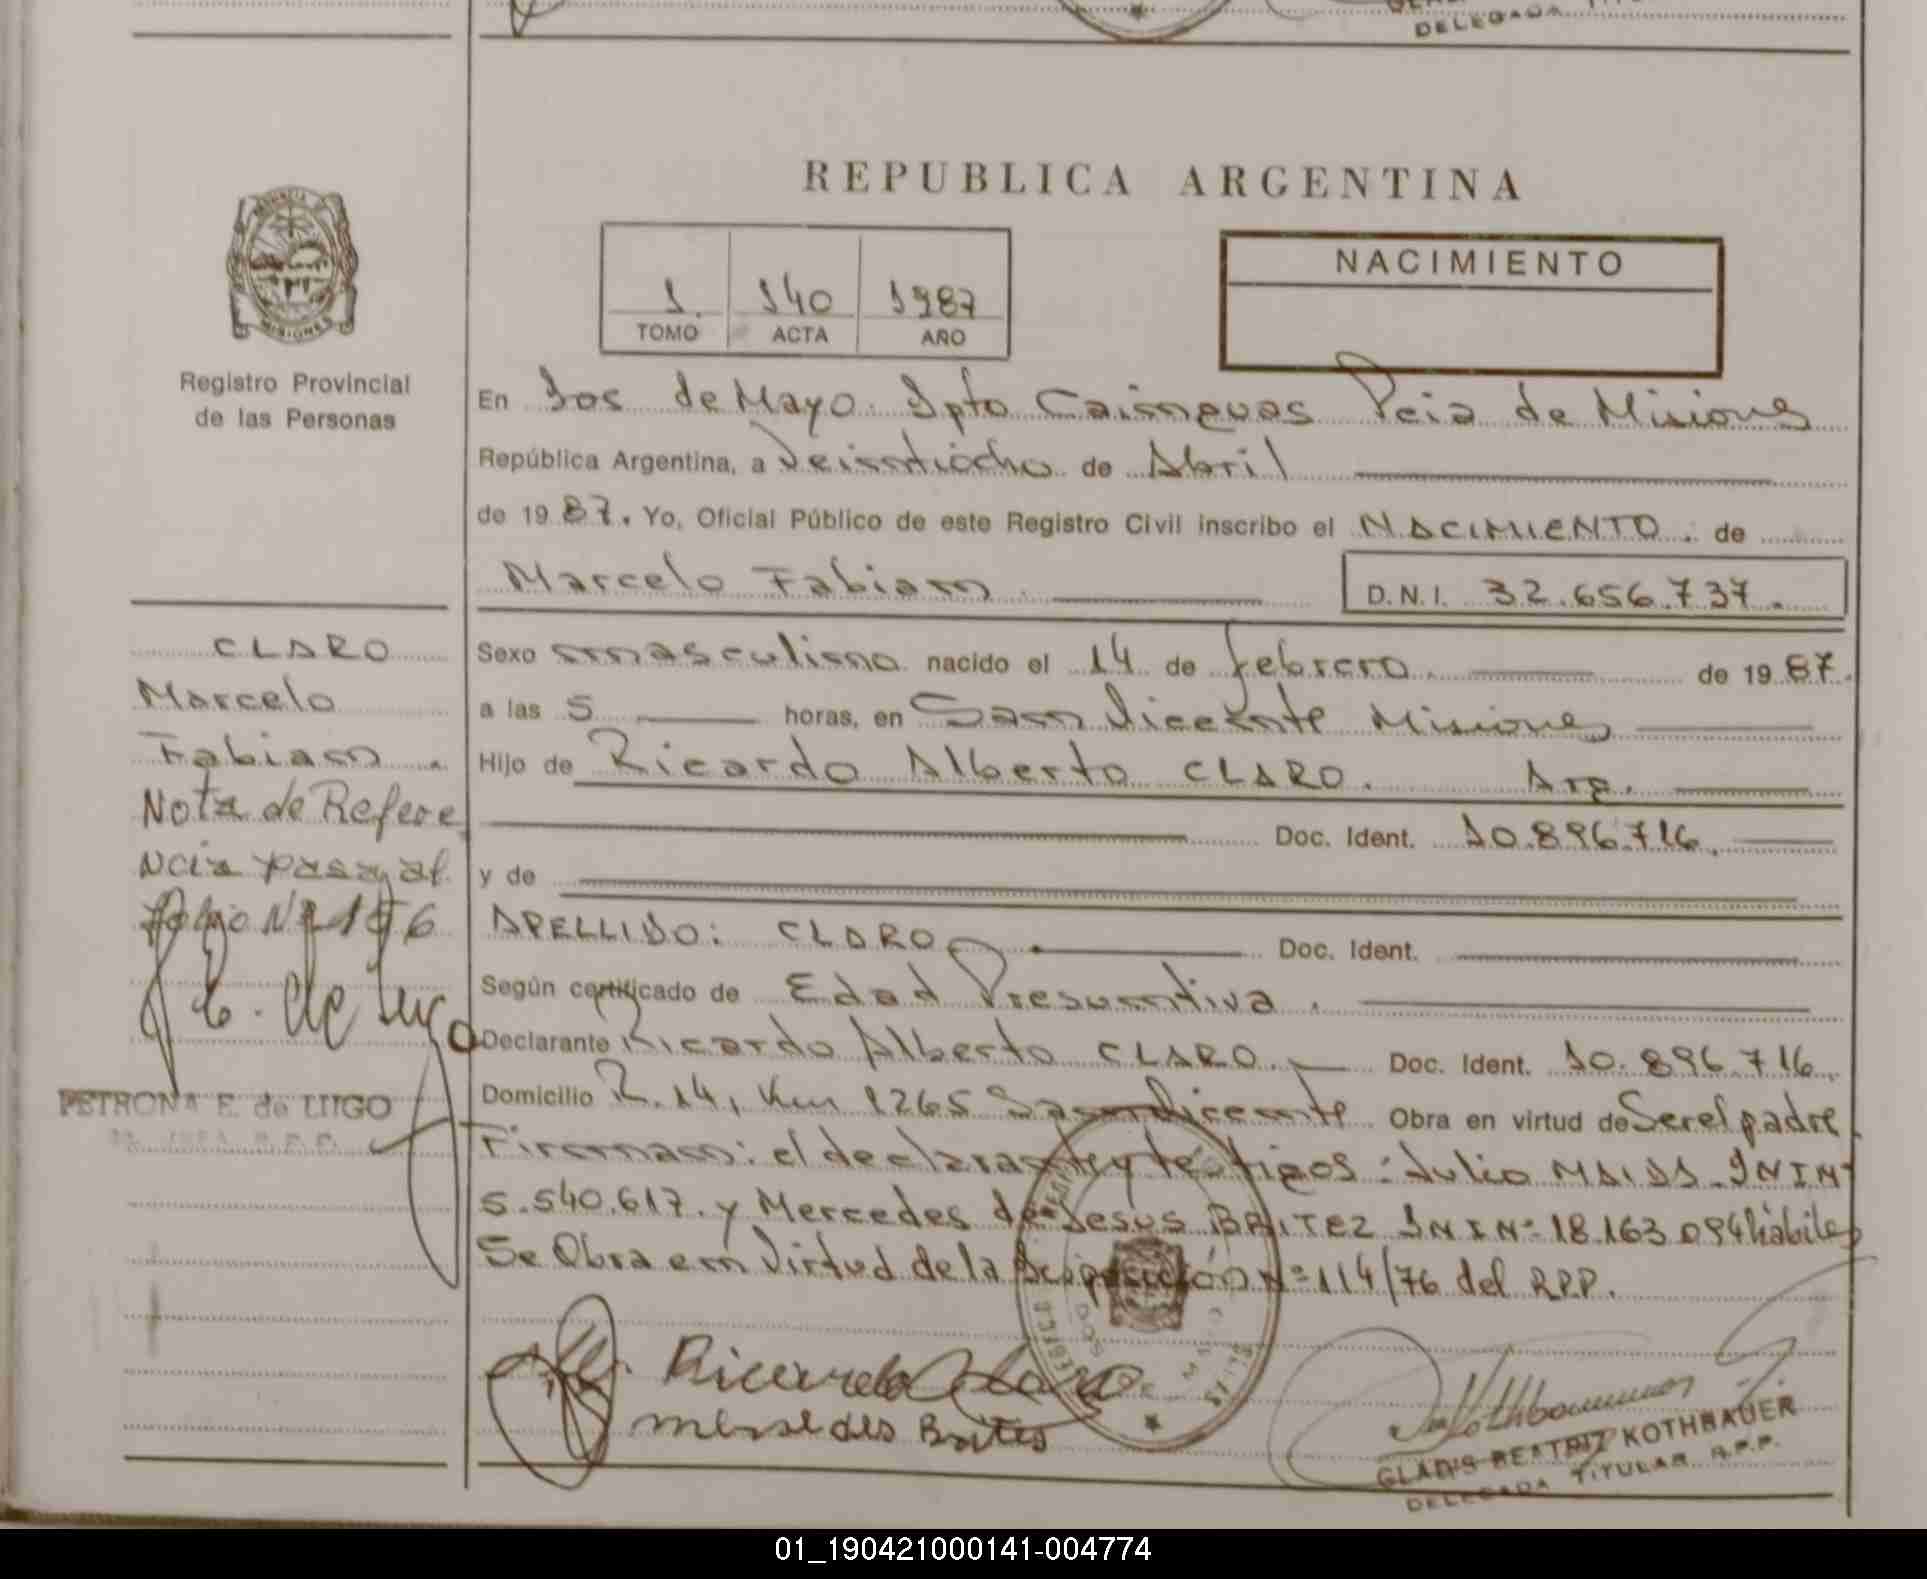 DELEGADA
REPUBLICA ARGENTINA
PROVINCIA
MISIONES
Registro Provincial
de las Personas
1. 140 1987
TOMO ACTA AÑO
NACIMIENTO
En Dos de Mayo. Dpto Cainguas Pcia de Misiones
República Argentina, a Veintiocho de Abril
de 1987. Yo, Oficial Público de este Registro Civil inscribo el NACIMIENTO. de
Marcelo Fabian D.N.I. 32.656.737.
Sexo masculino nacido el 14 de febrero. de 1987.
a las 5 horas, en San Vicente Misiones
Hijo de Ricardo Alberto CLARO. Arg.
Doc. Ident. 10.896.716.
y de
APELLIDO: CLARO Doc. Ident.
Según certificado de Edad Presuntiva.
Declarante Ricardo Alberto CLARO. Doc. Ident. 10.896.716.
Domicilio R.14, Km 1265 San Vicente Obra en virtud de Ser el padre.
Firman: el declarante y testigos: Julio DNI Nº
5.540.617. y Mercedes de Jesus BRITEZ DNI Nº 18.163.094 hábiles
Se Obra en Virtud de la Disposición Nº 114/76 del RPP.
CLARO
Marcelo
Fabian.
Nota de Refere
ncia pasa al
folio Nº
E. de Lugo
PETRONA E. de LUGO
Ricardo Claro
GLADIS BEATRIZ KOTHBAUER
DELEGADA TITULAR R.P.P.
01_190421000141-004774